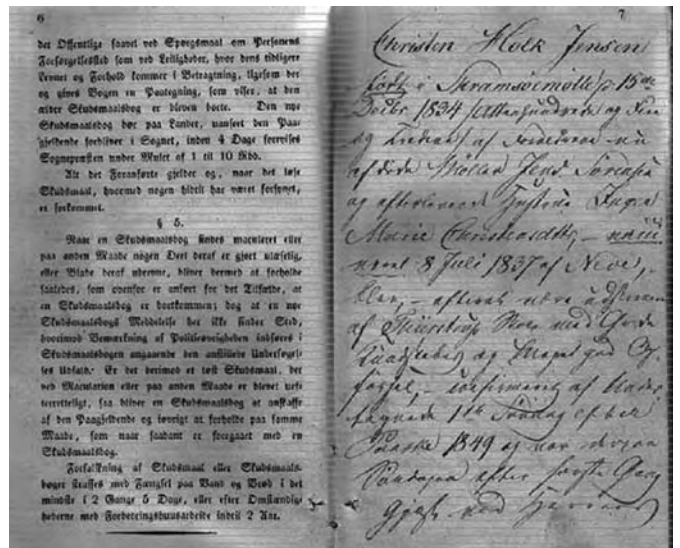 6
det Offentlige saavel ved Spørgsmaal om Personens
Forsørgelsessted som ved Leiligheder, hvor dens tidligere
Levnet og Forhold kommer i Betragtning, ligesom der
og gives Bogen en Paategning, som viser, at den
ældre Skudsmaalsbog er bleven borte. Den nye
Skudsmaalsbog bør paa Landet, uanseet den Paa-
gjeldende forbliver i Sognet, inden 4 Dage forevises
Sognepræsten under Mulct af 1 til 10 Rbd.
Alt det Foranførte gjelder og, naar det løse
Skudsmaal, hvormed nogen hidtil har været forsynet,
er forkommet.
§ 5.
Naar en Skudsmaalsbog findes maculeret eller
paa anden Maade nogen Deel deraf er gjort ulæselig,
eller Blade deraf udrevne, bliver dermed at forholde
saaledes, som ovenfor er anført for det Tilfælde, at
en Skudsmaalsbog er bortkommen; dog at en nye
Skudsmaalsbogs Meddelelse her ikke finder Sted,
hvorimod Bemærkning af Politieøvrigheden indføres i
Skudsmaalsbogen angaaende den anstillede Undersøgel-
ses Udfald. Er det derimod et løst Skudsmaal, der
ved Maculation eller paa anden Maade er blevet uefs-
terretteligt, saa bliver en Skudsmaalsbog at anskaffe
af den Paagjeldende og iøvrigt at forholde paa samme
Maade, som naar saadant er foregaaet med en
Skudsmaalsbog.
Forfalskning af Skudsmaal eller Skudsmaals-
bøger straffes med Fængsel paa Vand og Brød i det
mindste i 2 Gange 5 Dage, eller efter Omstændig-
hederne med Forbedringshuusarbeide indtil 2 Aar.
7
Christen Holk Jensen
født i Skramsøemølle p. 15de
Decbr. 1834 (Attenhundrede og Fire
og Tredive) af Forældrene nu
afdøde Møller Jens Sørensen
og efterlevende Hustrue Inger
Marie Christensdtt, –
8 Juli 1837 af
– efteraar
af Skole med Gode
Kundskaber og Meget god Op-
førsel, – confirmeret af
1ste Søndag efter
Paaske 1849 og var derpaa
Søndagen efter første Gang
Gjæst ved Herrens